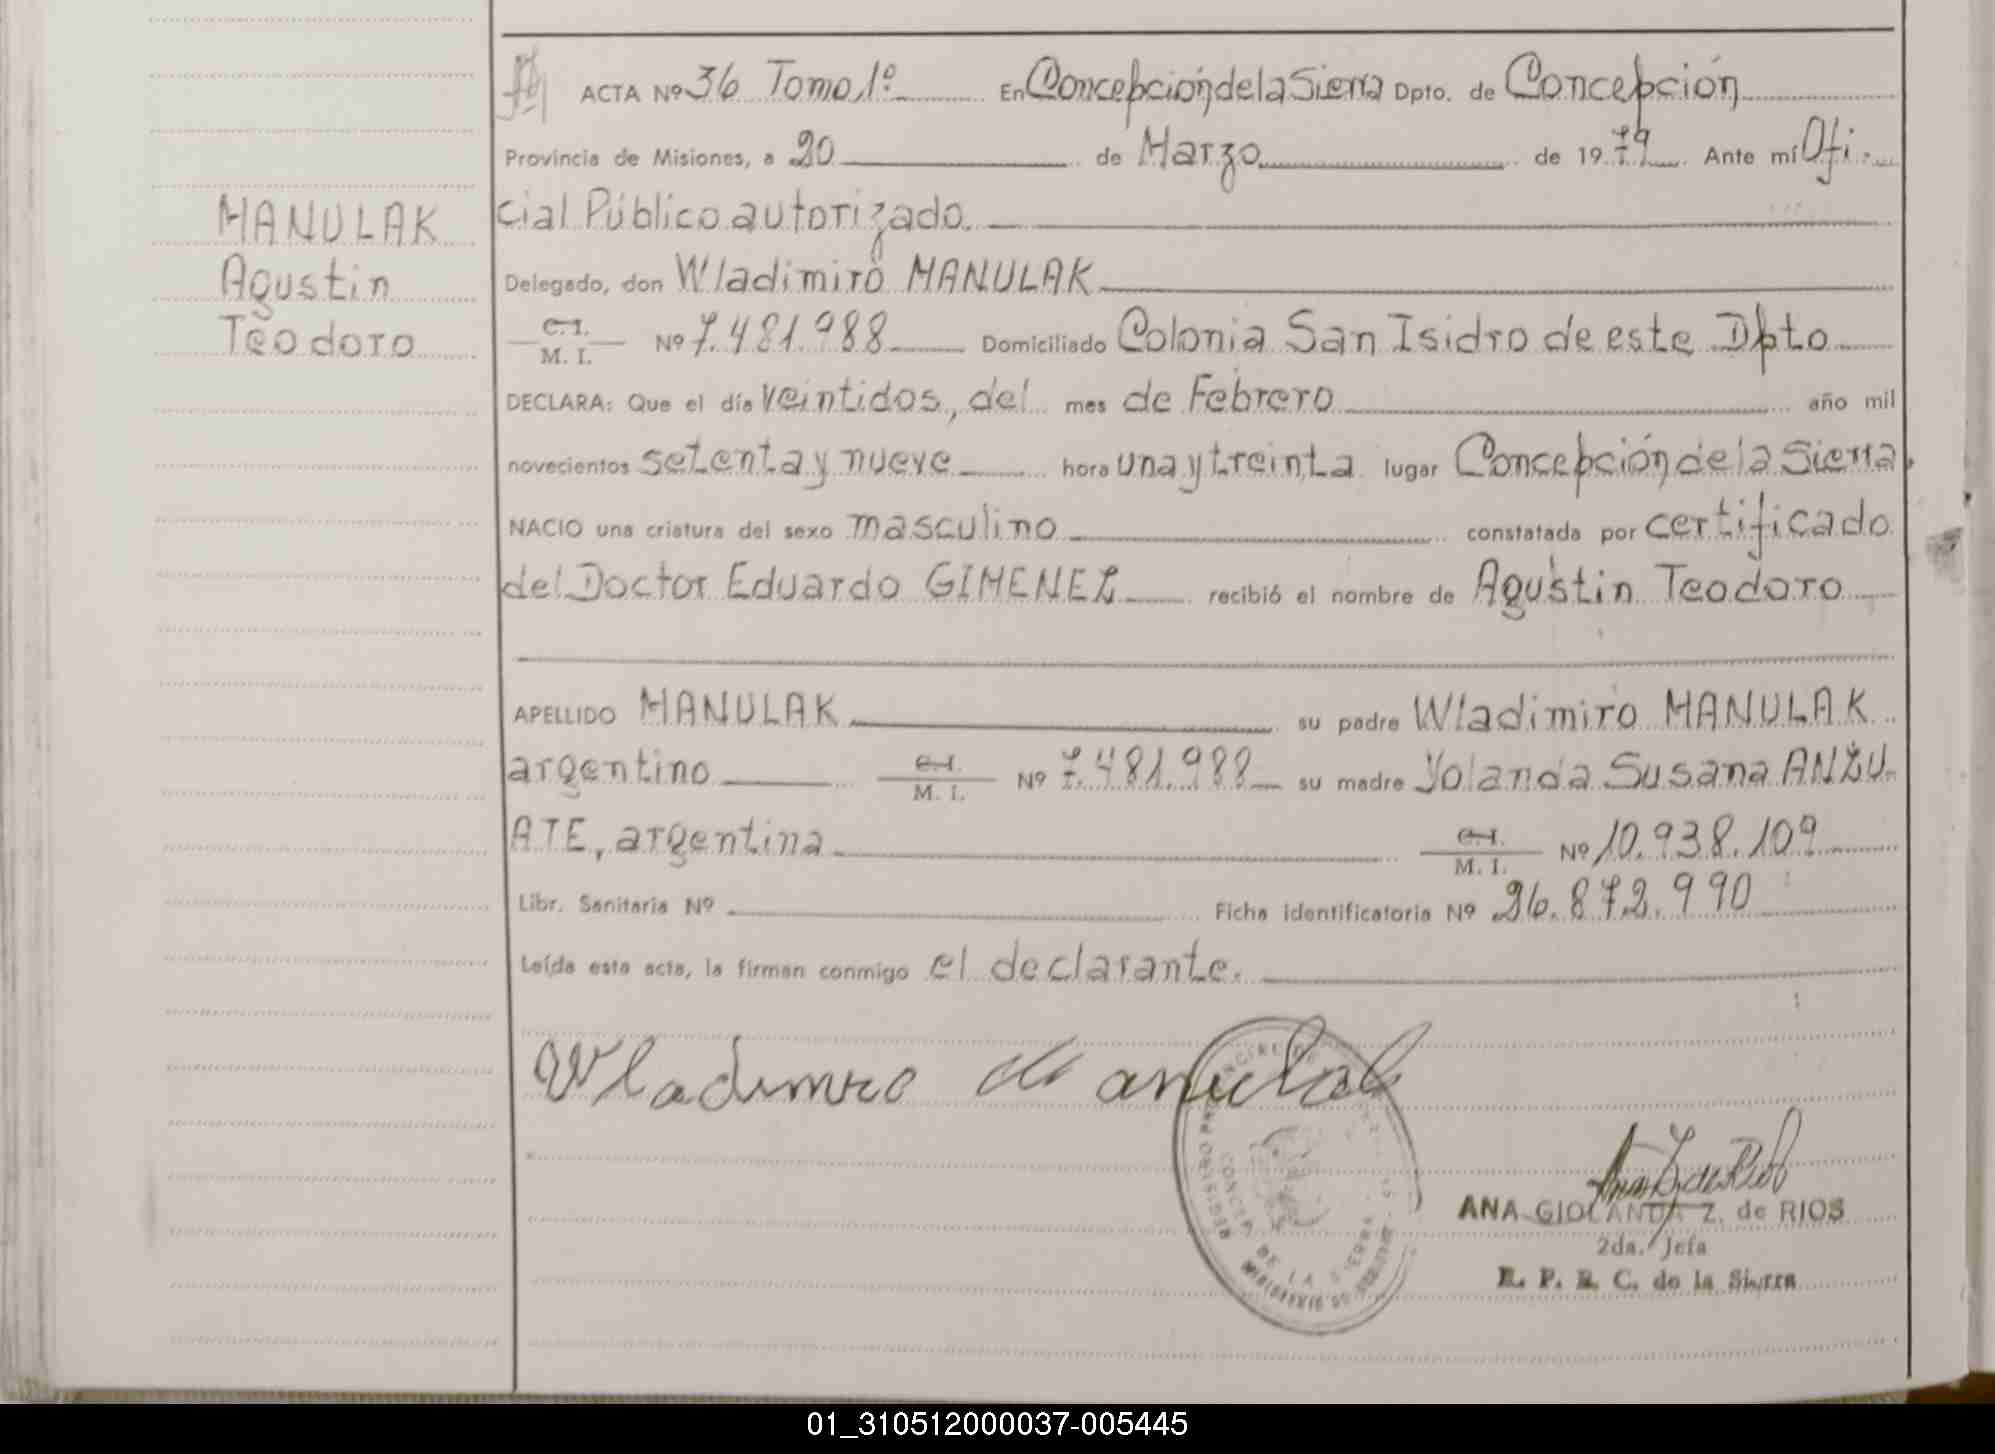 ACTA Nº 36 Tomo 1º En Concepción de la Sierra Dpto. de Concepción
Provincia de Misiones, a 20 de Marzo de 1979 Ante mí Ofi-
MANULAK cial Público autorizado.
Agustin Delegado, don Wladimiro MANULAK
Teodoro C.I. M. I. Nº 7.481.988 Domiciliado Colonia San Isidro de este Dpto
DECLARA: Que el día veintidos, del mes de Febrero año mil
novecientos setenta y nueve hora una y treinta lugar Concepción de la Sierra,
NACIO una criatura del sexo masculino constatada por certificado
del Doctor Eduardo GIMENEZ recibió el nombre de Agustin Teodoro
APELLIDO MANULAK su padre Wladimiro MANULAK
argentino C.I. M. I. Nº 7.481.988 su madre Yolanda Susana ANZU-
ATE, argentina C.I. M. I. Nº 10.938.109
Libr. Sanitaria Nº Ficha identificatoria Nº 26.872.990
Leída esta acta, la firman conmigo el declarante.
Wladimiro Manulak
CONCEP. DE LA SIERRA
ANA GIOLANDA Z. de RIOS
2da. Jefa
R. P. E. C. de la Sierra
01_310512000037-005445